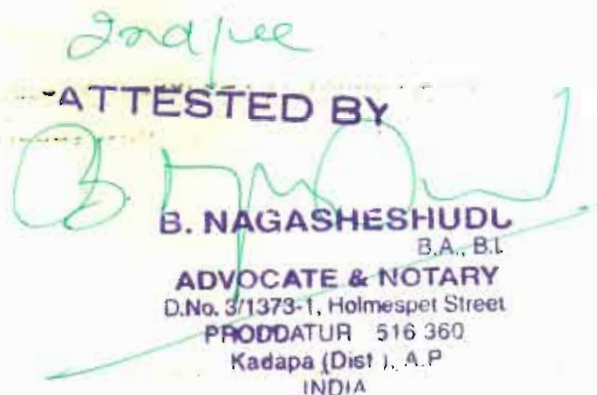 ATTESTED BY
B. NAGASHESHUDU
B.A., B.L
ADVOCATE & NOTARY
D.No. 3/1373-1, Holmespet Street
PRODDATUR 516 360
Kadapa (Dist ), A.P
INDIA